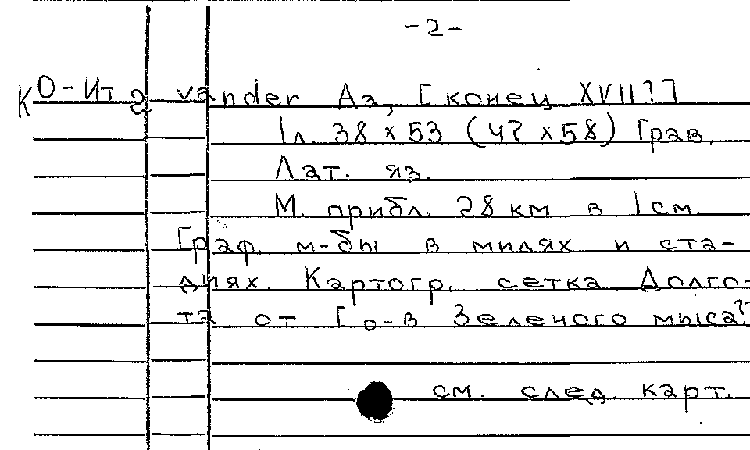 -2-
КО-Ит 2 vander Aa, [конец XVII?]
1л. 38 x 53 (47 x 58) Грав.
Лат. яз.
М. прибл. 28 км в 1 см
Граф. м-бы в милях и ста-
диях. Картогр. сетка Долго-
та от [о-в Зеленого мыса?
см. след. карт.